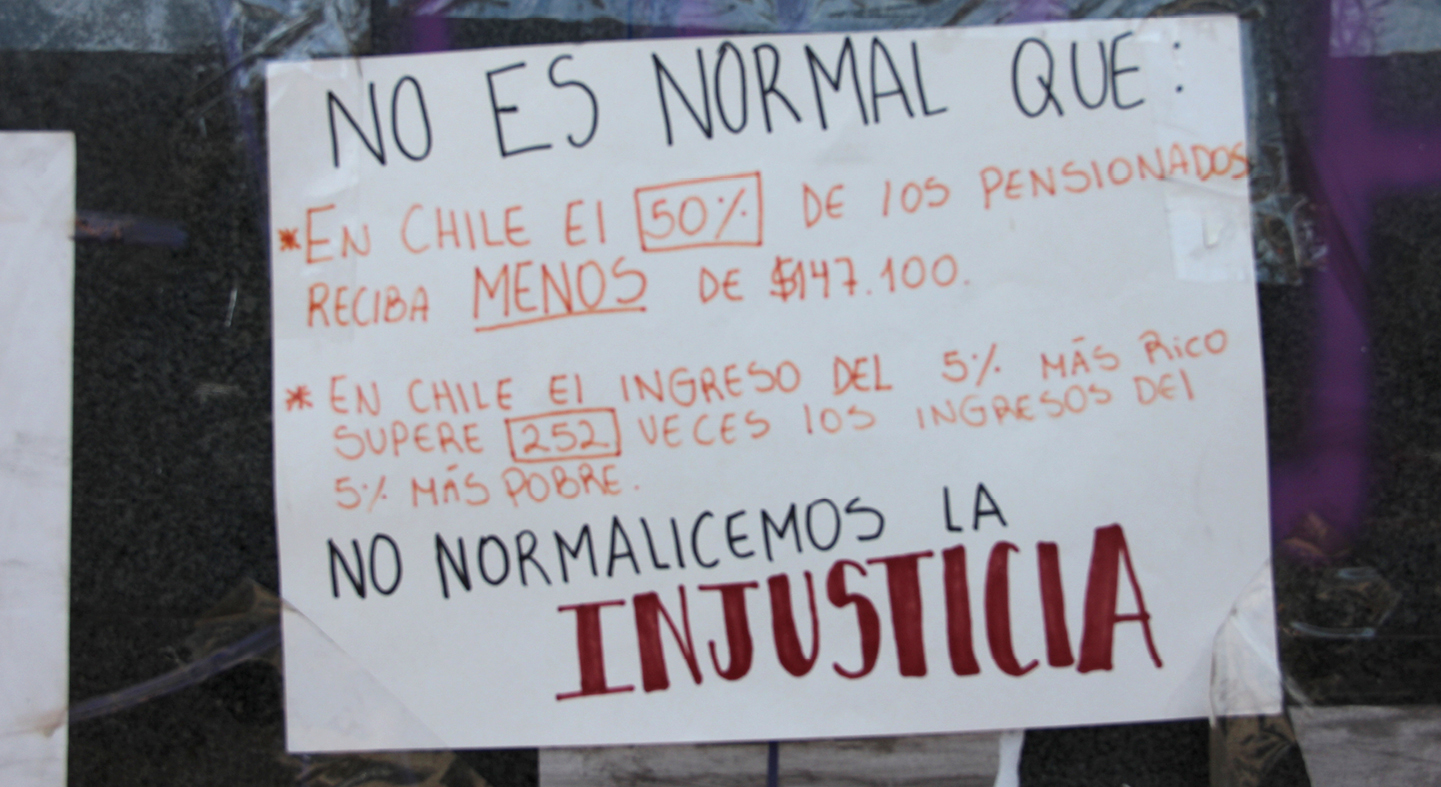 NO ES NORMAL QUE:
*EN CHILE El 50% DE lOS PENSIONADOS
RECIBA MENOS DE $147.100.
* EN CHILE El INGRESO DEL 5% MÁS RiCO
SUPERE 252 VECES lOS INGRESOS DEl
5% MÁS POBRE.
NO NORMALICEMOS LA
INJUSTICIA